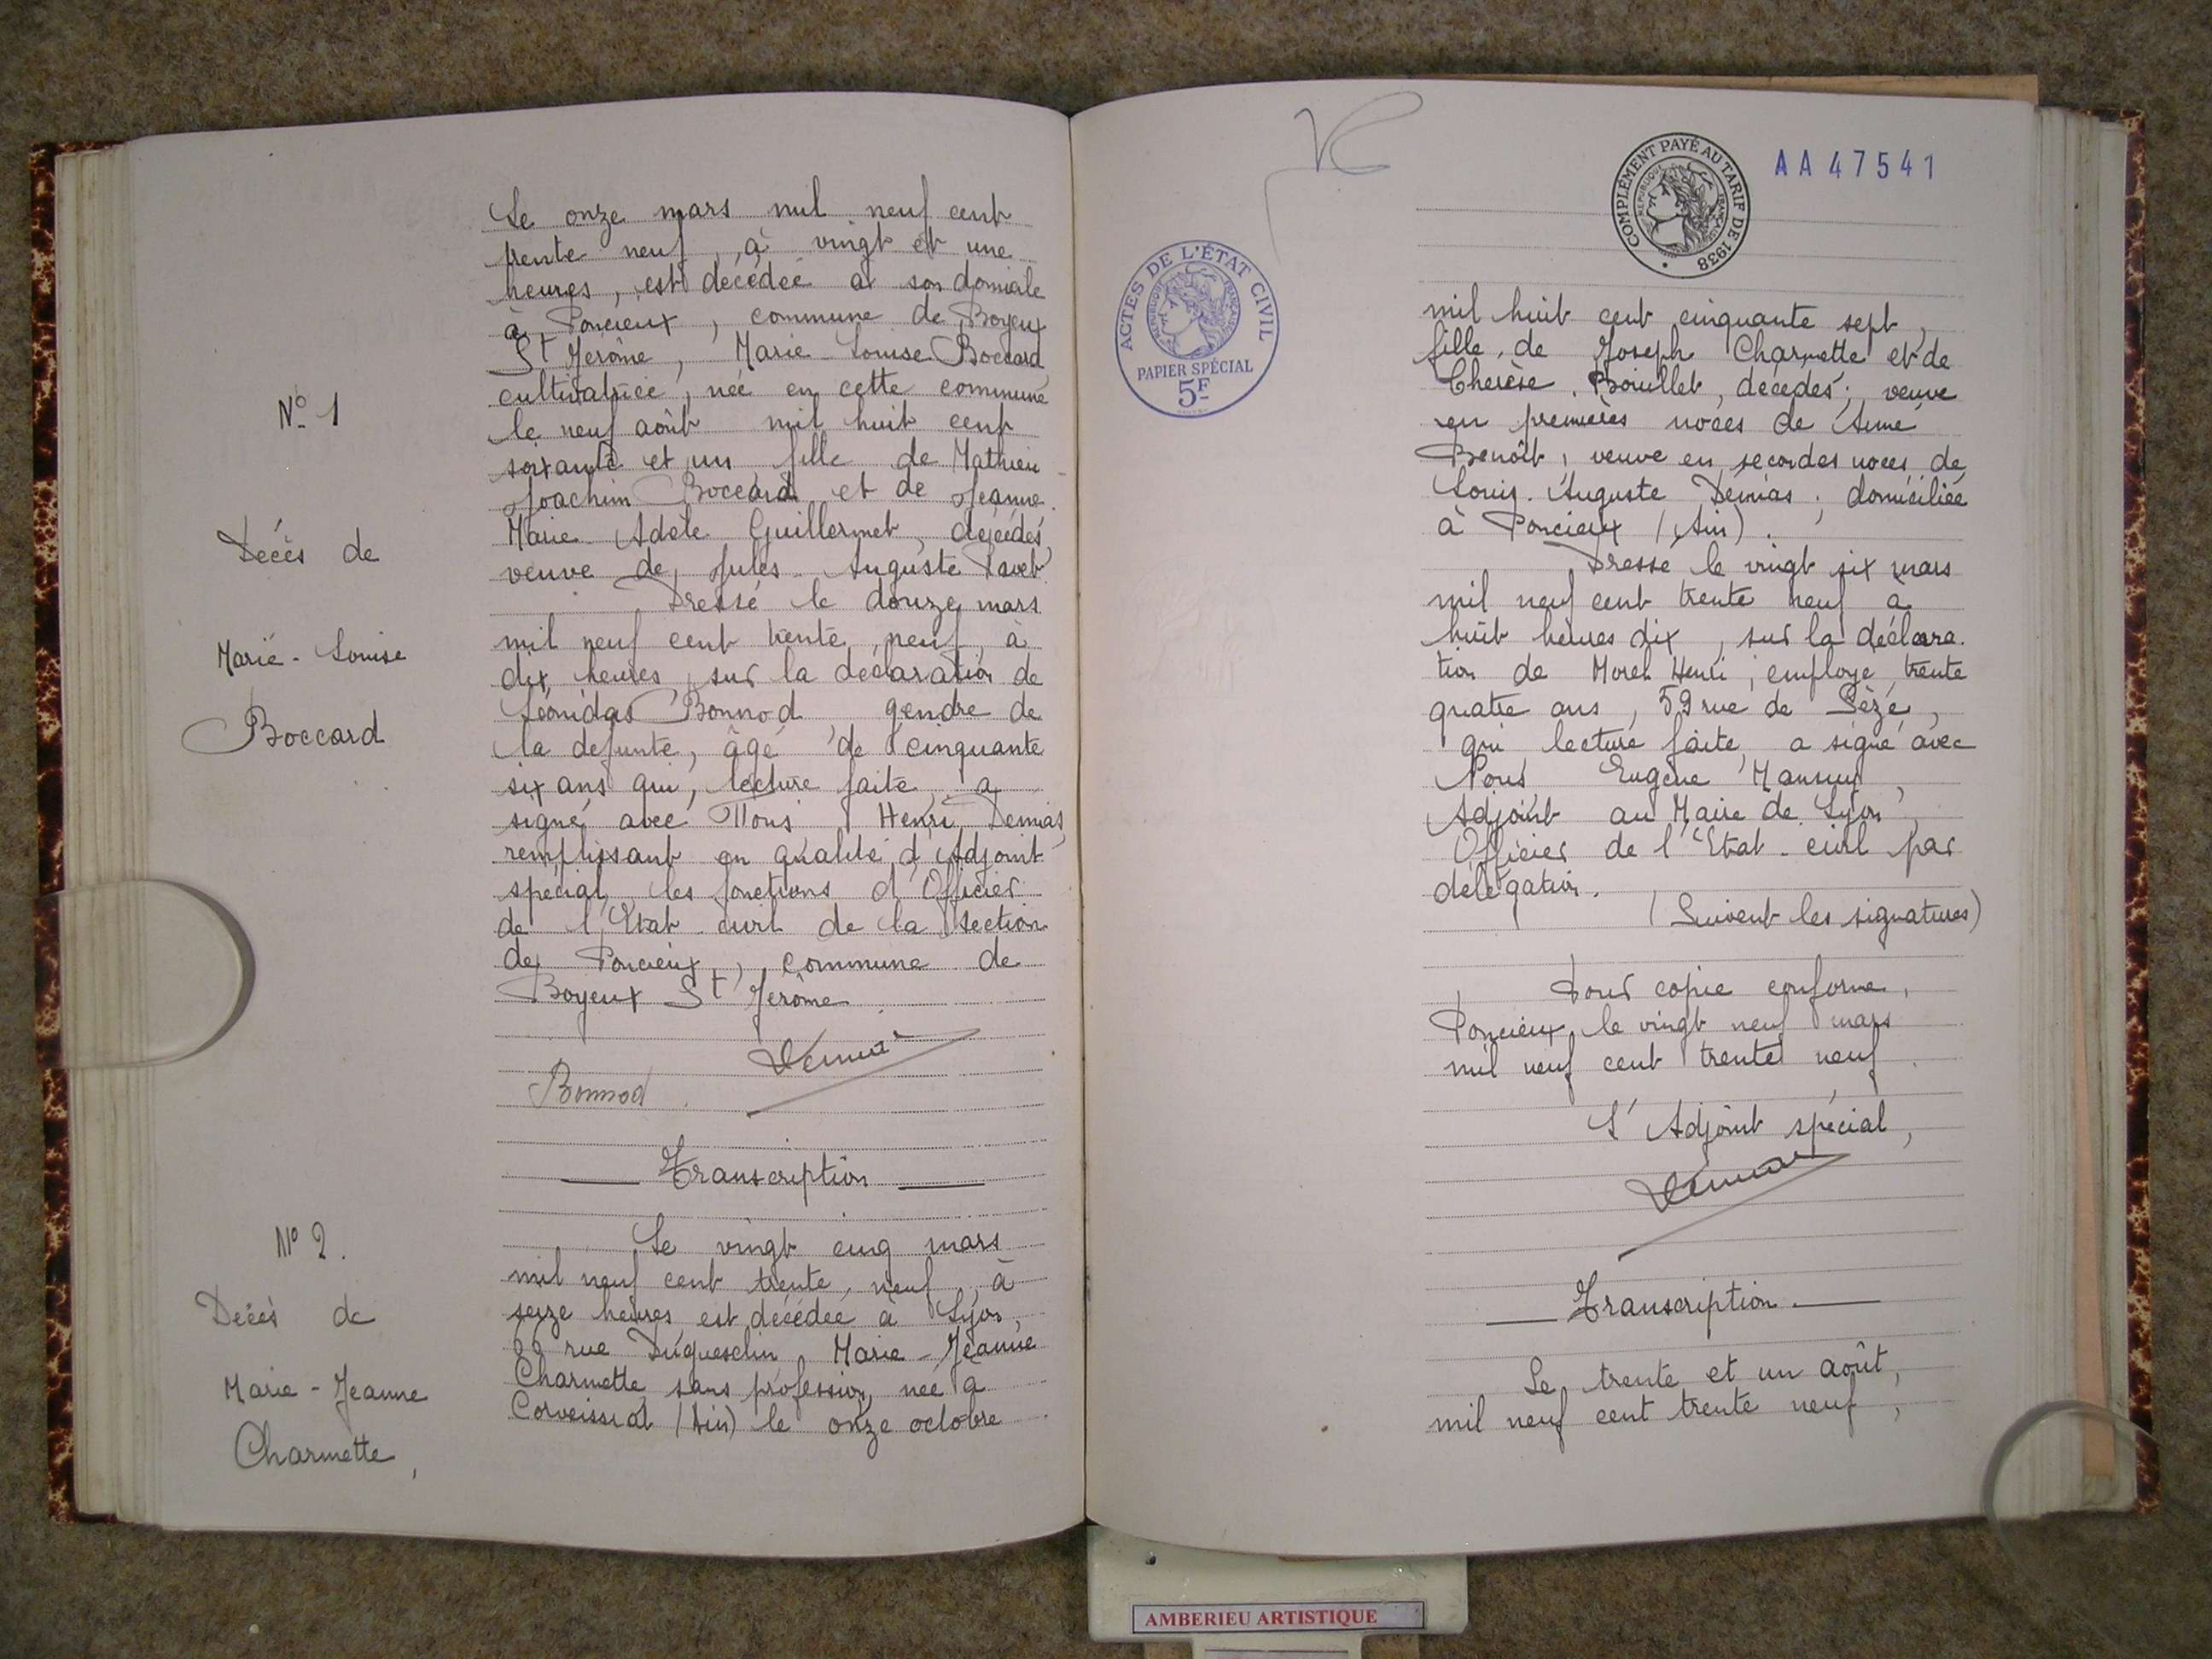 Le onze mars mil neuf cent
trente neuf, à vingt et une
heures, est décédée à son domicile
à Poncieux, commune de Boyeux
St Jérôme, Marie-Louise Boccard
N° 1
cultivatrice, née en cette commune
le neuf août mil huit cent
soixante et un fille de Mathieu
Joachim Boccard et de Jeanne
Décès de
Marie Adèle Guillermet, décédés,
veuve de Jules Auguste Pavet
Dressé le douze mars
mil neuf cent trente neuf, à
Marie-Louise
dix heures, sur la déclaration de
Léonidas Bonnod gendre de
Boccard
la défunte, âgé de cinquante
six ans qui, lecture faite, a
signé avec Nous Henri Demias,
remplissant en qualité d'Adjoint
spécial, les fonctions d'Officier
de l'Etat civil de la section
de Poncieux, commune de
Boyeux St Jérôme.
Demias
Bonnod
Transcription
N° 2.
Le vingt cinq mars
mil neuf cent trente neuf, à
Décès de
seize heures, est décédée à Lyon,
rue Duguesclin Marie-Jeanne
Marie-Jeanne
Charmette sans profession, née à
Corveissiat (Ain) le onze octobre
Charmette,
COMPLÉMENT PAYÉ AU TARIF DE 1938
REPUBLIQUE FRANÇAISE
AA47541
ACTES DE L'ÉTAT CIVIL
REPUBLIQUE FRANÇAISE
PAPIER SPÉCIAL
5F
mil huit cent cinquante sept,
fille de Joseph Charmette et de
Therèse Bouillet, décédés; veuve
en premières noces de Aimé
Benoît, veuve en secondes noces de
Louis Auguste Demias; domiciliée
à Poncieux (Ain).
Dressé le vingt six mars
mil neuf cent trente neuf à
huit heures dix, sur la déclara-
tion de Morel Henri, employé, trente
quatre ans, 59 rue de Sèze,
qui lecture faite, a signé avec
Nous Eugène
Adjoint au Maire de Lyon,
Officier de l'Etat civil par
délégation.
(Suivent les signatures)
Pour copie conforme,
Poncieux, le vingt neuf mars
mil neuf cent trente neuf
L'Adjoint spécial,
Demias
Transcription
Le trente et un août,
mil neuf cent trente neuf,
AMBERIEU ARTISTIQUE